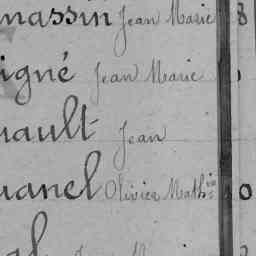 massin Jean Marie 8
igné Jean Marie
nault Jean
uanel Olivier Math in 0